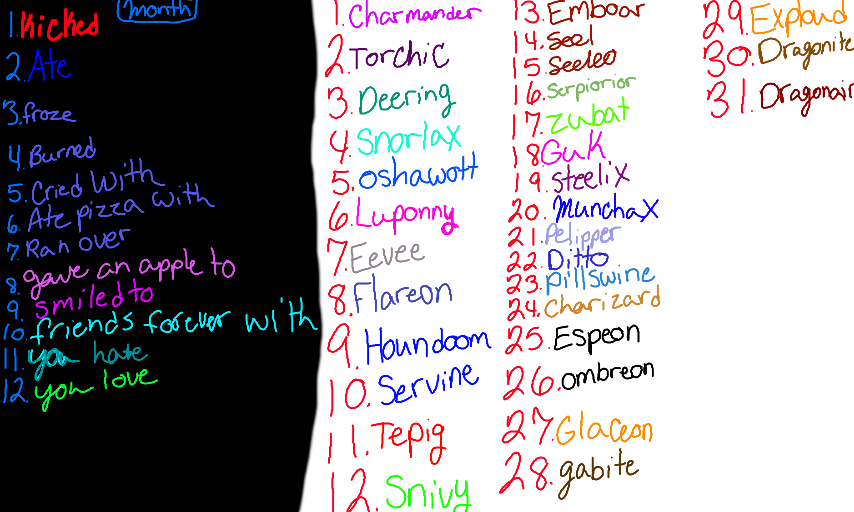 month
1. Kicked
2. Ate
3. froze
4. Burned
5. Cried With
6. Ate pizza with
7. Ran over
8. gave an apple to
9. smiled to
10. friends forever with
11. you hate
12. you love
1. Charmander
2. Torchic
3. Deering
4. Snorlax
5. oshawott
6. Luponny
7. Eevee
8. Flareon
9. Houndoom
10. Servine
11. Tepig
12. Snivy
13. Emboar
14. Seel
15. Seeleo
16. Serpiorior
17. Zubat
18. Guk
19. Steelix
20. Munchax
21. Pelipper
22. Ditto
23. pillswine
24. Charizard
25. Espeon
26. ombreon
27. Glaceon
28. gabite
29. Exploud
30. Dragonite
31. Dragonair